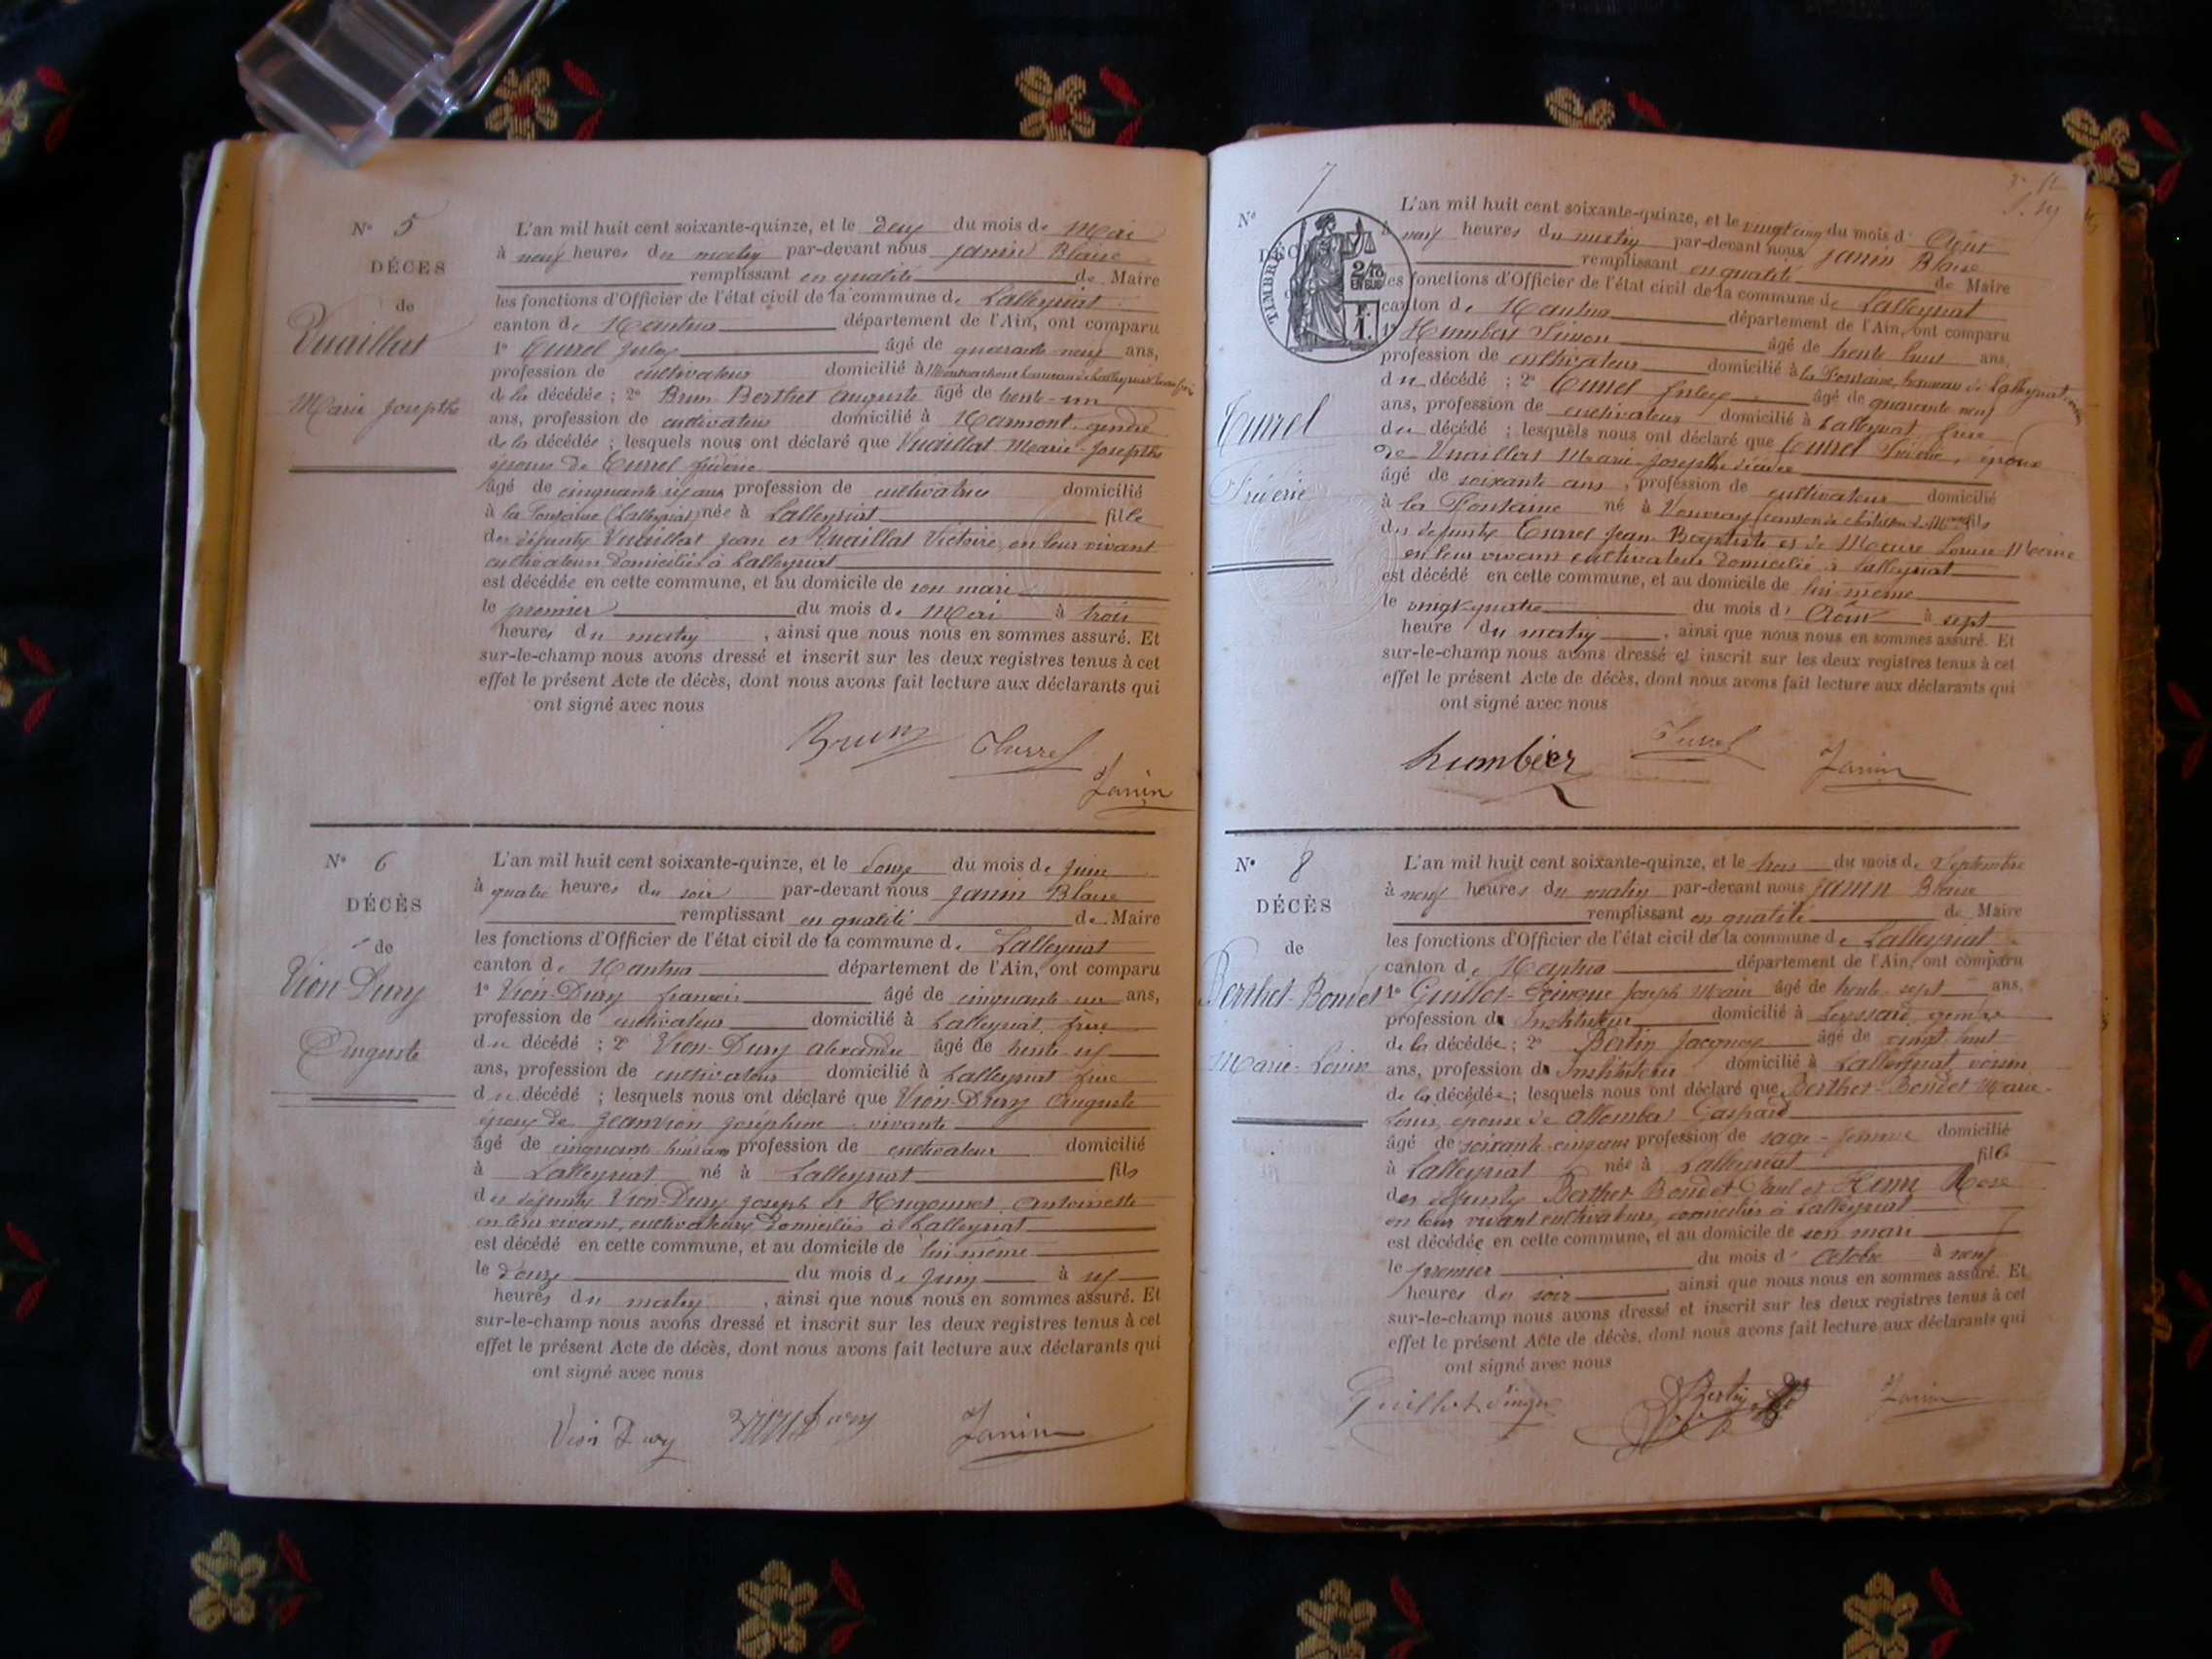 N° 5
DÉCES
de
Vuaillat
Marie Josepthe
L'an mil huit cent soixante-quinze, et le deux du mois de Mai
à neuf heures du matin par-devant nous Janin Blaise
remplissant en qualité de Maire
les fonctions d'Officier de l'état civil de la commune de Lalleyriat
canton de Nantua département de l'Ain, ont comparu
1° Turrel âgé de quarante-neuf ans,
profession de cultivateur domicilié à hameau de Lalleyriat
de la décédée ; 2° Brun-Berthet Auguste âgé de trente-un
ans, profession de cultivateur domicilié à gendre
de la décédée ; lesquels nous ont déclaré que Vuaillat Marie-Josepthe
épouse de Turrel fréderic
âgé de cinquante six ans profession de cultivatrice domicilié
à la Fontaine (Lalleyriat) née à Lalleyriat fille
des défunts Vuaillat Jean et Vuaillat Victoire, en leur vivant
cultivateurs domiciliés à Lalleyriat
est décédée en cette commune, et au domicile de son mari
le premier du mois de Mai à trois
heures du matin, ainsi que nous nous en sommes assuré. Et
sur-le-champ nous avons dressé et inscrit sur les deux registres tenus à cet
effet le présent Acte de décès, dont nous avons fait lecture aux déclarants qui
ont signé avec nous
Brun Thurrel
Janin
N° 6
DÉCÈS
de
Vion-Dury
Auguste
L'an mil huit cent soixante-quinze, et le douze du mois de Juin
à quatre heures du soir par-devant nous Janin Blaise
remplissant en qualité de Maire
les fonctions d'Officier de l'état civil de la commune de Lalleyriat
canton de Nantua département de l'Ain, ont comparu
1° Vion-Dury françois âgé de cinquante-un ans,
profession de cultivateur domicilié à Lalleyriat, frère
du décédé ; 2° Vion-Dury alexandre âgé de trente-six
ans, profession de cultivateur domicilié à Lalleyriat frère
du décédé ; lesquels nous ont déclaré que Vion-Dury Auguste
époux de Jeanvion Joséphine vivante
âgé de cinquante huit ans profession de cultivateur domicilié
à Lalleyriat né à Lalleyriat fils
des défunts Vion-Dury Joseph et Hugonnet Antoinette
en leur vivant, cultivateurs domiciliés à Lalleyriat
est décédé en cette commune, et au domicile de lui-même
le douze du mois de Juin à six
heures du matin, ainsi que nous nous en sommes assuré. Et
sur-le-champ nous avons dressé et inscrit sur les deux registres tenus à cet
effet le présent Acte de décès, dont nous avons fait lecture aux déclarants qui
ont signé avec nous
Vion Dury Janin
N° 7
TIMBRE
2/10 EN SUS
F. 1.
Turrel
Fréderic
L'an mil huit cent soixante-quinze, et le vingt cinq du mois d' Août
à neuf heures du matin par-devant nous Janin Blaise
remplissant en qualité de Maire
les fonctions d'Officier de l'état civil de la commune de Lalleyriat
canton de Nantua département de l'Ain, ont comparu
1° Humbert Simon âgé de trente huit ans,
profession de cultivateur domicilié à la Fontaine, hameau de Lalleyriat
du décédé ; 2° Turrel âgé de quarante neuf
ans, profession de cultivateur domicilié à Lalleyriat frère
du décédé ; lesquels nous ont déclaré que Turrel Fréderic, époux
de Vuaillat Marie Josepthe décédée
âgé de soixante ans, profession de cultivateur domicilié
à la Fontaine né à Vouvray (canton de Châtillon de fils
des défunts Turrel Jean Baptiste et de Marie Louise
en leur vivant cultivateurs domiciliés à Lalleyriat
est décédé en cette commune, et au domicile de lui-même
le vingt-quatre du mois d' Août à sept
heure du matin, ainsi que nous nous en sommes assuré. Et
sur-le-champ nous avons dressé et inscrit sur les deux registres tenus à cet
effet le présent Acte de décès, dont nous avons fait lecture aux déclarants qui
ont signé avec nous
humbert Turrel Janin
N° 8
DÉCÈS
de
Berthet-Bondet
Marie-Louise
L'an mil huit cent soixante-quinze, et le trois du mois de Septembre
à neuf heures du matin par-devant nous Janin Blaise
remplissant en qualité de Maire
les fonctions d'Officier de l'état civil de la commune de Lalleyriat
canton de Nantua département de l'Ain, ont comparu
1° Guillot Joseph Marie âgé de trente-sept ans,
profession de Instituteur domicilié à Leyssard gendre
de la décédée ; 2° Bertin Jacques âgé de vingt huit
ans, profession de Instituteur domicilié à Lalleyriat, voisin
de la décédée ; lesquels nous ont déclaré que Berthet-Bondet Marie-
Louise, épouse de Allombert Gaspard
âgé de soixante-cinq ans profession de sage-femme domicilié
à Lalleyriat née à Lalleyriat fille
des défunts Berthet Bondet Paul et Henri Rose
en leur vivant cultivateurs, domiciliés à Lalleyriat
est décédée en cette commune, et au domicile de son mari
le premier du mois d' Octobre à neuf
heures du soir ainsi que nous nous en sommes assuré. Et
sur-le-champ nous avons dressé et inscrit sur les deux registres tenus à cet
effet le présent Acte de décès, dont nous avons fait lecture aux déclarants qui
ont signé avec nous
Bertin Janin